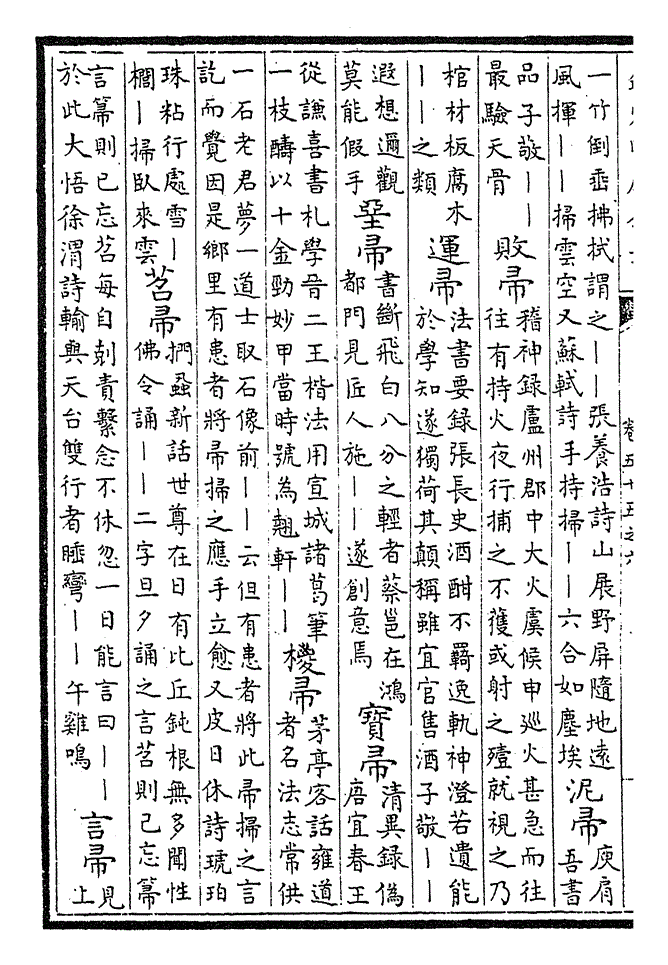 一竹倒垂拂拭謂之｜｜張養浩詩山展野屏隨地遠
風揮｜｜掃雲空又蘇軾詩手持掃｜｜六合如塵埃
泥帚
庾肩
吾書
品子敬｜｜
最驗天骨
敗帚
稽神録廬州郡中大火虞候申廵火甚急而往
往有持火夜行捕之不獲或射之殪就視之乃
棺材板腐木
｜｜之類
運帚
法書要録張長史酒酣不羈逸軌神澄若遺能
於學知遂獨荷其顛稱雖宜官售酒子敬｜｜
遐想邇觀
莫能假手
堊帚
書斷飛白八分之輕者蔡邕在鴻
都門見匠人施｜｜遂創意焉
寶帚
清異録偽
唐宜春王
從謙喜書札學晉二王楷法用宣城諸葛筆
一枝醻以十金勁妙甲當時號為翹軒｜｜
椶帚
茅亭客話雍道
者名法志常供
一石老君夢一道士取石像前｜｜云但有患者將此帚掃之言
訖而覺因是鄉里有患者將帚掃之應手立愈又皮日休詩琥珀
珠粘行處雪｜
櫚｜掃臥來雲
苕帚
捫蝨新話世尊在日有比丘鈍根無多聞性
佛令誦｜｜二字旦夕誦之言苕則已忘箒
言箒則已忘苕每自刻責繫念不休忽一日能言曰｜｜
於此大悟徐渭詩輸與天台雙行者睡彎｜｜午雞鳴
言帚
見
上
卷五十五之六